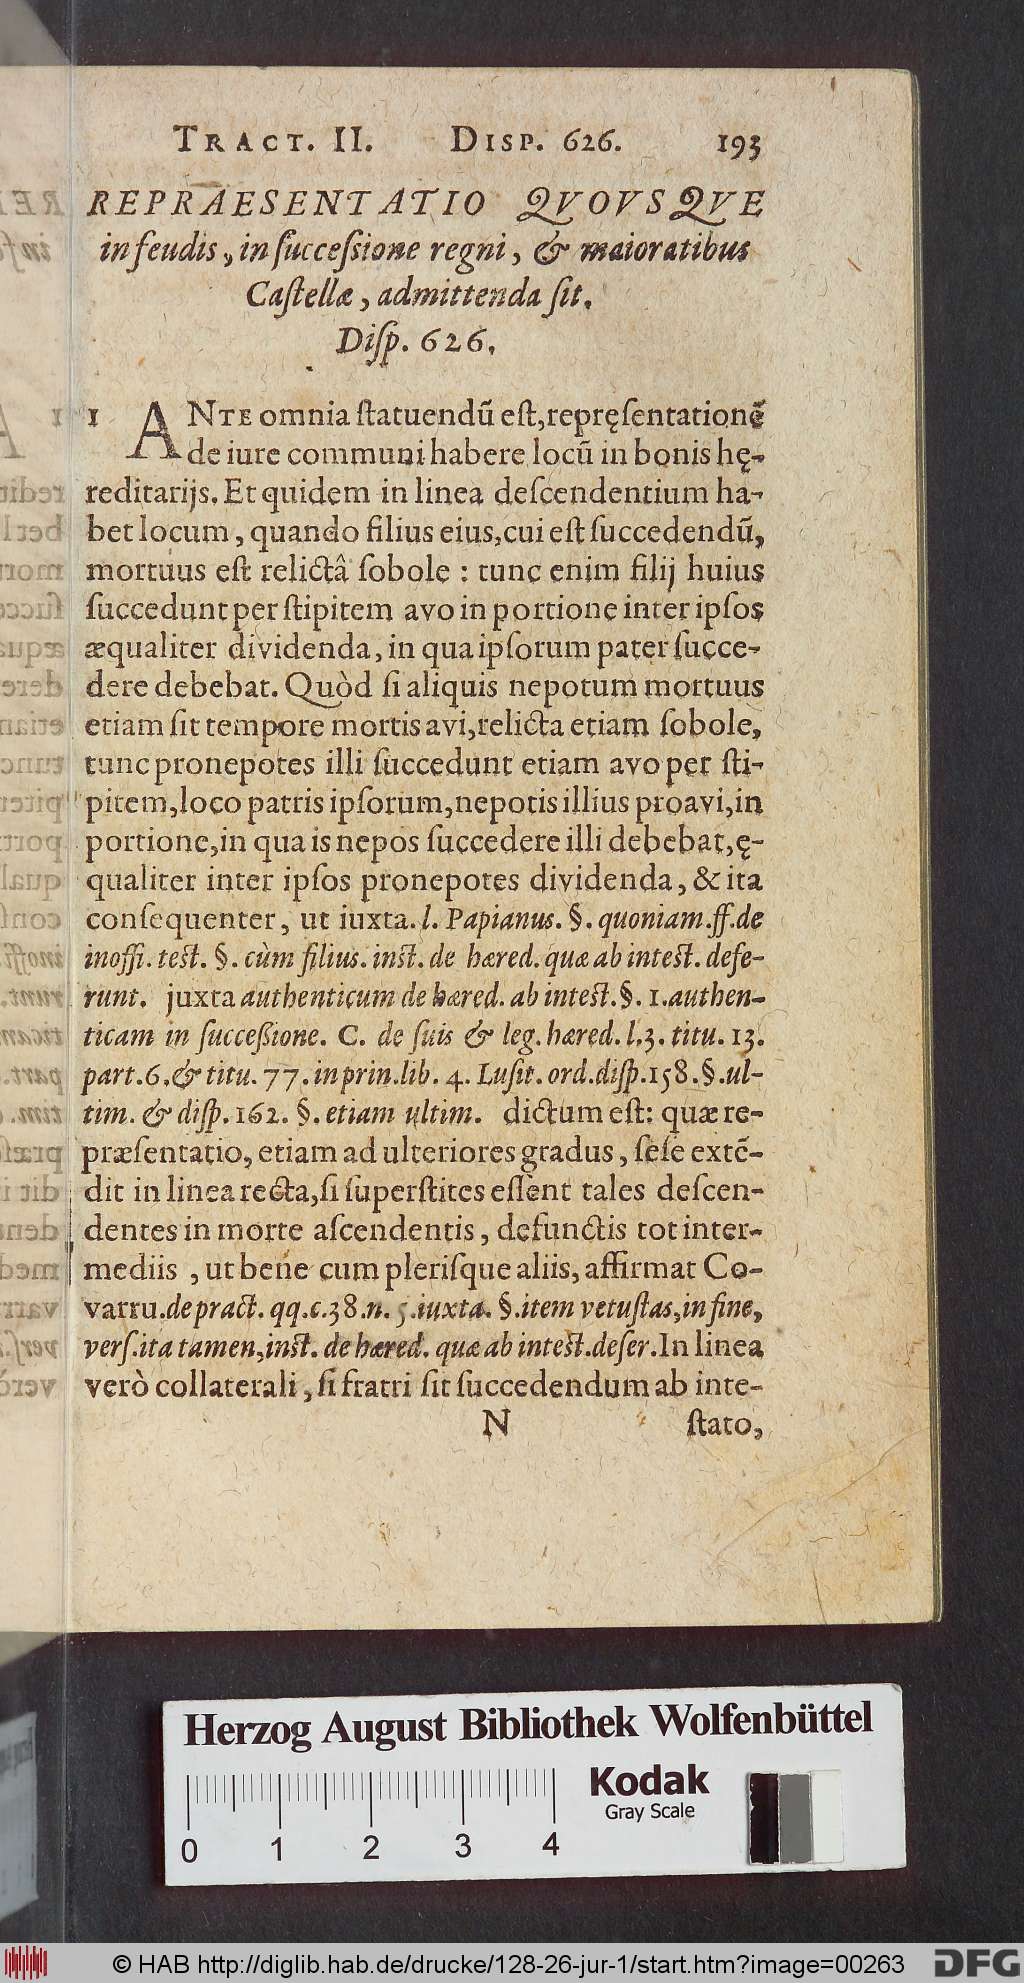 TRACT. II. DISP. 626. 193
REPRAESENTATIO QVOVSQVE
in feudis, in ſucceſsione regni, & maioratibus
Caſtellæ, admittenda ſit.
Diſp. 626.
1 ANTE omnia ſtatuendũ eſt, repręſentationẽ
de iure communi habere locũ in bonis hę-
reditarijs. Et quidem in linea deſcendentium ha-
bet locum, quando filius eius, cui eſt ſuccedendũ,
mortuus eſt relictâ ſobole : tunc enim filij huius
ſuccedunt per ſtipitem avo in portione inter ipſos
æqualiter dividenda, in qua ipſorum pater ſucce-
dere debebat. Quòd ſi aliquis nepotum mortuus
etiam ſit tempore mortis avi, relicta etiam ſobole,
tunc pronepotes illi ſuccedunt etiam avo per ſti-
pitem, loco patris ipſorum, nepotis illius proavi, in
portione, in qua is nepos ſuccedere illi debebat, ę-
qualiter inter ipſos pronepotes dividenda, & ita
conſequenter, ut iuxta. l. Papianus. §. quoniam. ff. de
inoffi. teſt. §. cùm filius. inſt. de hæred. quæ ab inteſt. defe-
runt. juxta authenticum de hæred. ab inteſt. §. 1. authen-
ticam in ſucceßione. C. de ſuis & leg. hæred. l. 3. titu. 13.
part. 6. & titu. 77. in prin. lib. 4. Luſit. ord. diſp. 158. §. ul-
tim. & diſp. 162. §. etiam ultim. dictum eſt: quæ re-
præſentatio, etiam ad ulteriores gradus, ſeſe extẽ-
dit in linea recta, ſi ſuperſtites eſſent tales deſcen-
dentes in morte aſcendentis, defunctis tot inter-
mediis , ut bene cum pleriſque aliis, affirmat Co-
varru. de pract. qq. c. 38. n. 5. iuxta. §. item vetuſtas, in fine,
verſ. ita tamen, inſt. de hæred. quæ ab inteſt. defer. In linea
verò collaterali, ſi fratri ſit ſuccedendum ab inte-
N ſtato,
Herzog August Bibliothek Wolfenbüttel
Kodak
Gray Scale
0 1 2 3 4
© HAB http://diglib.hab.de/drucke/128-26-jur-1/start.htm?image=00263
DFG